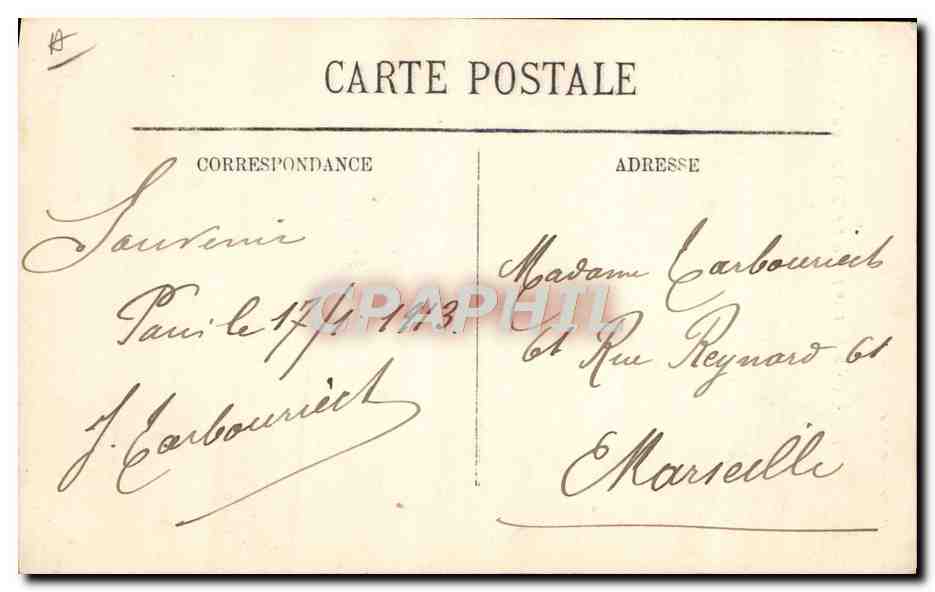 CARTE POSTALE
CORRESPONDANCE
Souvenir
Paris le 17/1 1913.
J. Tarbouriech
ADRESSE
Madame Tarbouriech
61 Rue Reynard 61
Marseille
CPAPHIL